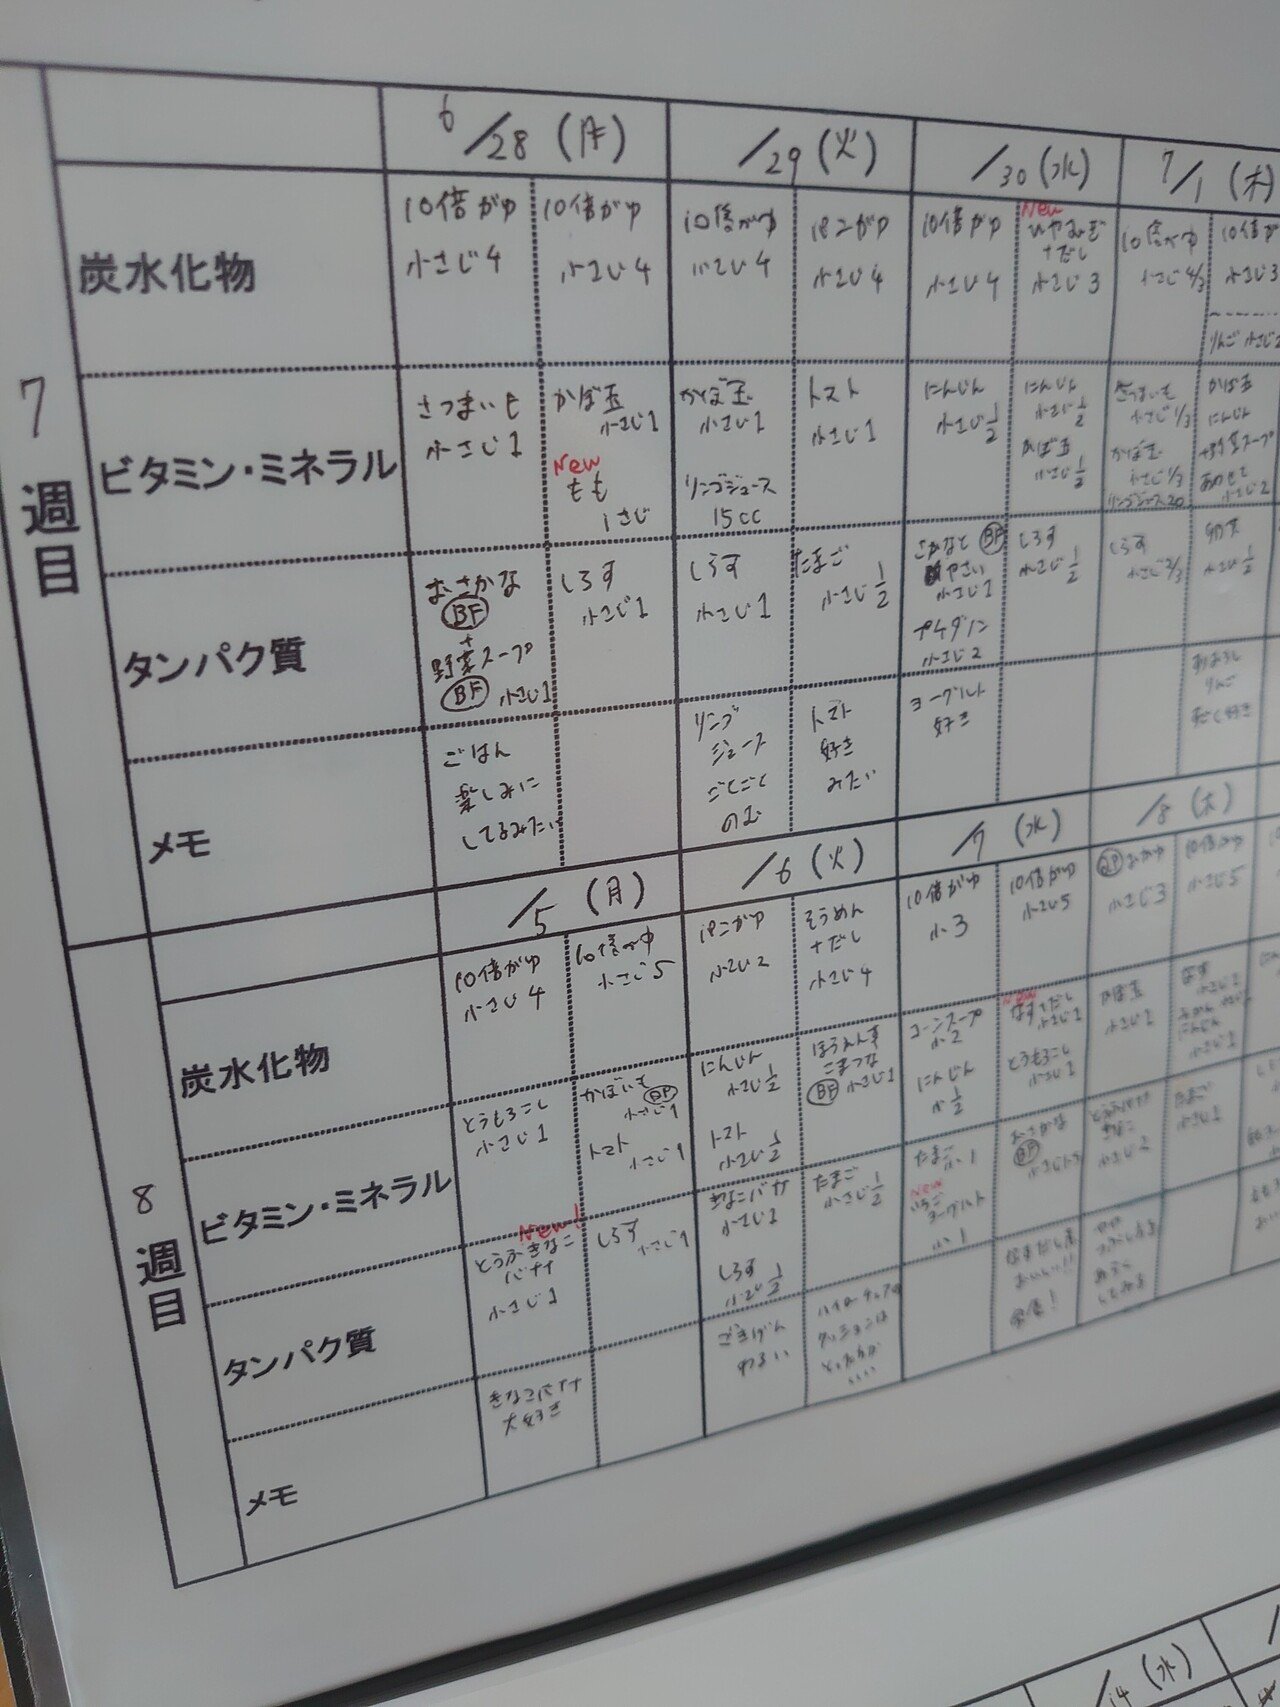 6/28（月）
/29（火）
/30（水）
7/1（木）
7週目
炭水化物
10倍がゆ
小さじ4
10倍がゆ
小さじ4
10倍がゆ
小さじ4
パンがゆ
小さじ4
10倍がゆ
小さじ4
New
ひやむぎ
+だし
小さじ3
10倍がゆ
小さじ4/3
10倍が
小さじ3
りんご 小さじ2
ビタミン・ミネラル
さつまいも
小さじ1
かぼ玉
小さじ1
New
もも
1さじ
かぼ玉
小さじ1
リンゴジュース
15cc
トマト
小さじ1
にんじん
小さじ1/2
にんじん
小さじ1/2
かぼ玉
小さじ1/2
さつまいも
小さじ1/3
かぼ玉
小さじ1/3
リンゴジュース20
かぼ玉
にんじん
+野菜スープ
あわせて
小さじ2
タンパク質
おさかな
BF
+
野菜スープ
BF 小さじ1
しらす
小さじ1
しらす
小さじ1
たまご
小さじ1/2
さかなと BF
やさい
小さじ1
プチダノン
小さじ2
しらす
小さじ1/2
しらす
小さじ2/3
小さじ1/2
メモ
ごはん
楽しみに
してるみたい
リンゴ
ジュース
ごくごく
のむ
トマト
好き
みたい
ヨーグルト
好き
すりおろし
りんご
すごく好き
/5（月）
/6（火）
/7（水）
/8（木）
8週目
炭水化物
10倍がゆ
小さじ4
10倍がゆ
小さじ5
パンがゆ
小さじ2
そうめん
+だし
小さじ4
10倍がゆ
小3
10倍がゆ
小さじ5
おかゆ
小さじ3
10倍がゆ
小さじ5
ビタミン・ミネラル
とうもろこし
小さじ1
かぼいも
BF
小さじ1
トマト
小さじ1
にんじん
小さじ1/2
トマト
小さじ1/2
ほうれん草
こまつな
BF 小さじ1
コーンスープ
小2
にんじん
小1/2
New
なす+だし
小さじ1
とうもろこし
小さじ1
かぼ玉
小さじ1
なす
小さじ1
にんじん
小さじ1
タンパク質
New!
とうふきなこ
バナナ
小さじ1
しらす
小さじ1
きなこバナナ
小さじ1
しらす
小さじ1/2
たまご
小さじ1/2
たまご 小1
New
いちご
ヨーグルト
小1
おさかな
BF
とうふバナナ
きなこ
小さじ2
たまご
小さじ1
メモ
きなこバナナ
大好き
ごきげん
わるい
ハイローチェアの
クッションは
とった方が
いい
なすだし煮
おいしい!!
完食!
/14（水）